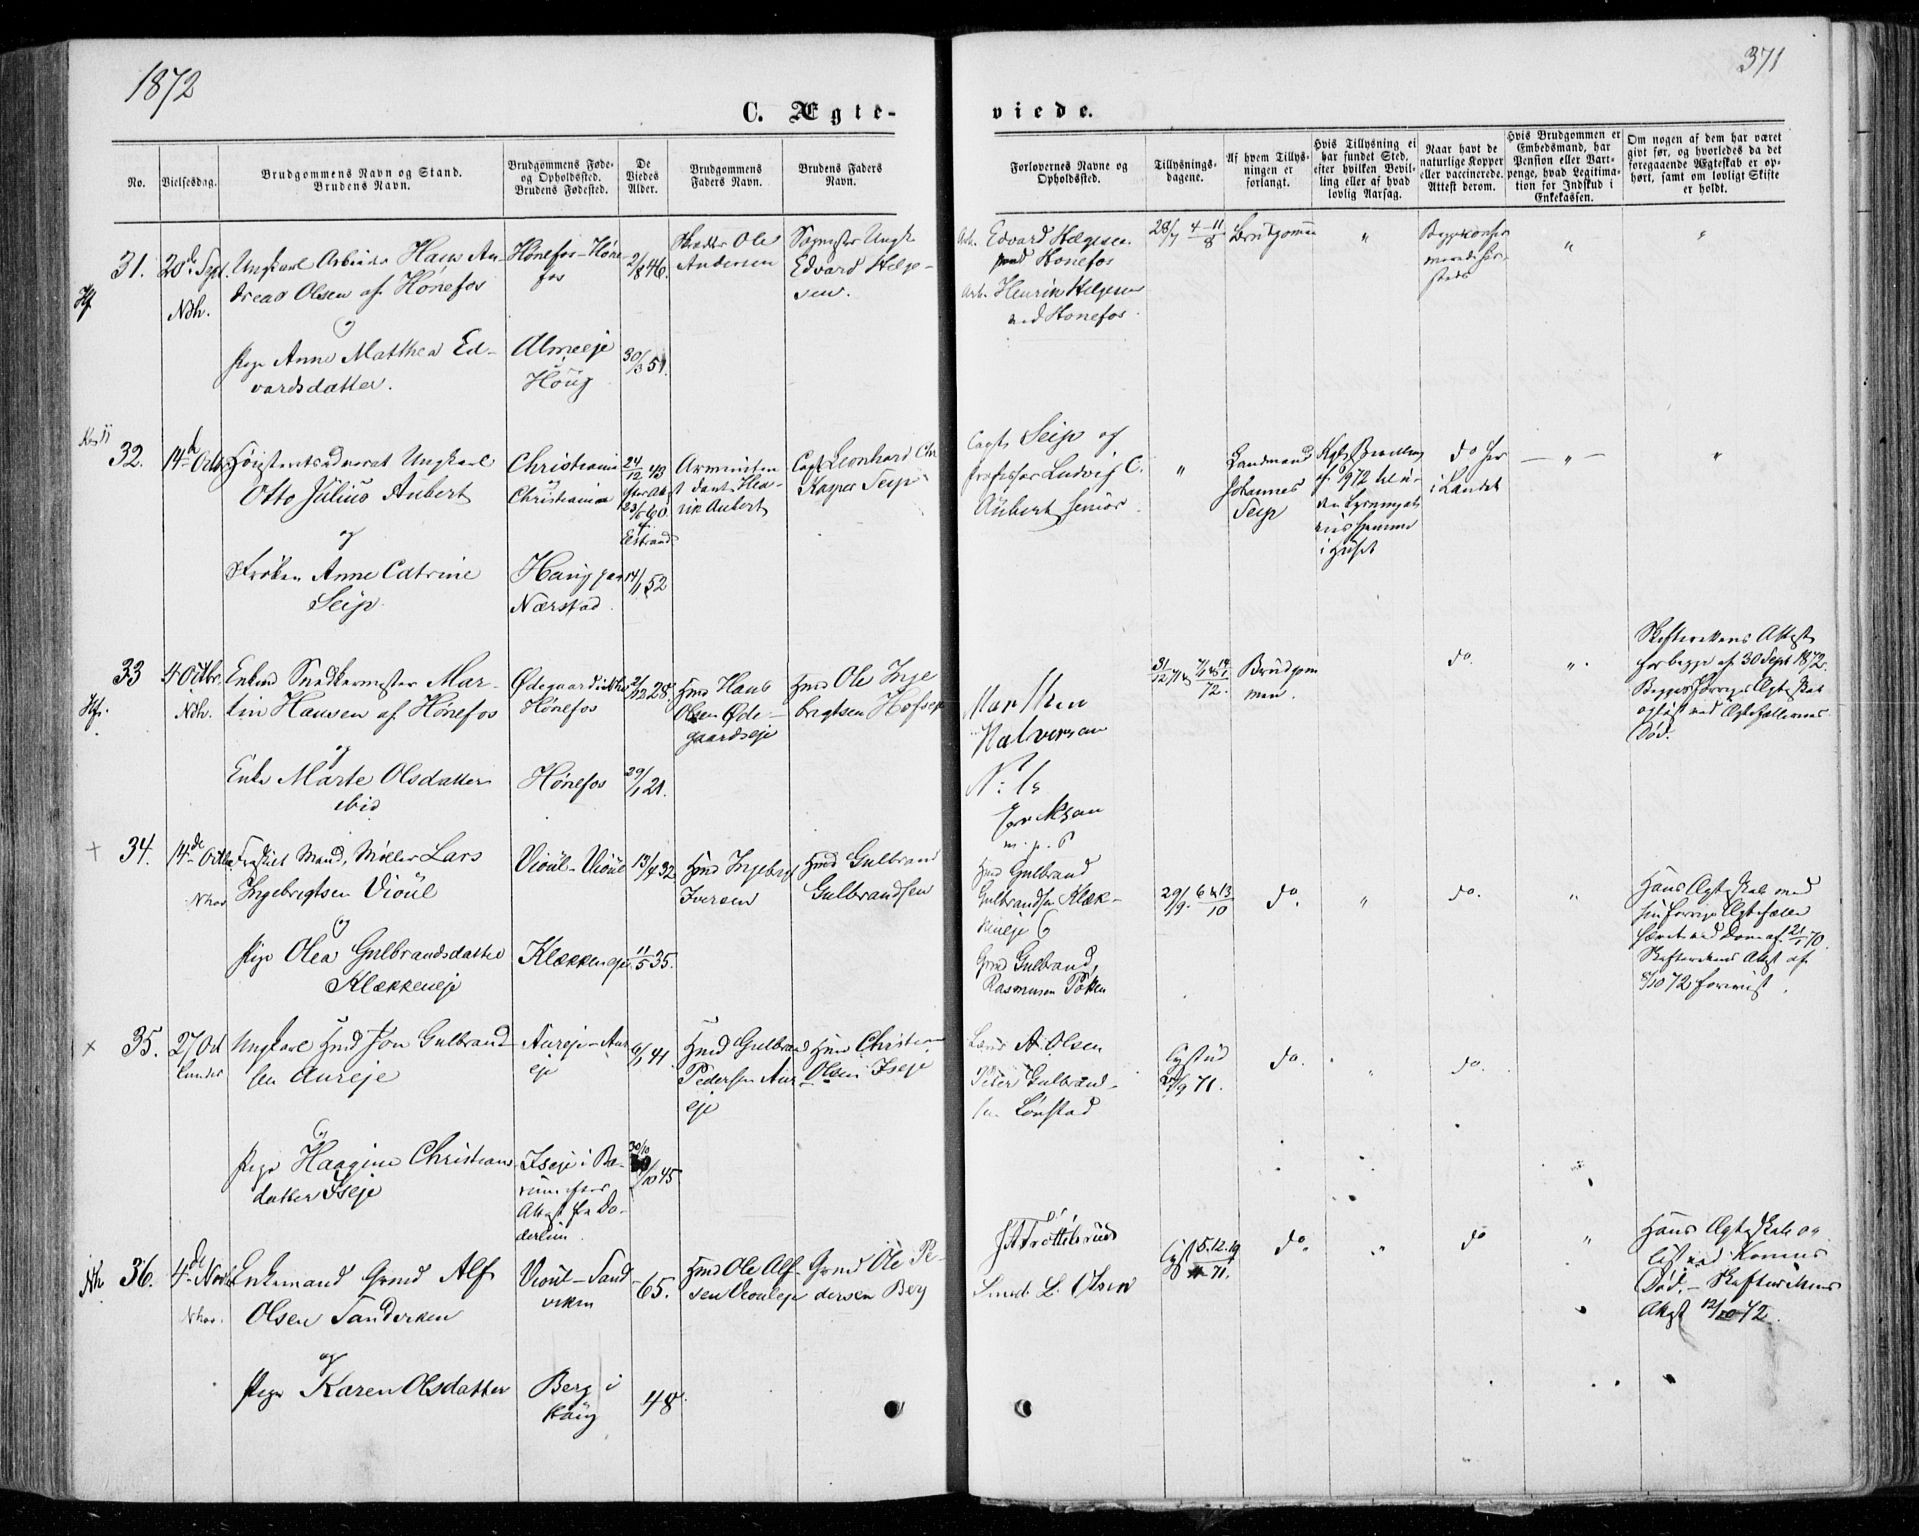 1872
371
C. Ægte-
viede.
No.
Vielsesdag.
Brudgommens Navn og Stand.
Brudens Navn.
Brudgommens Føde-
og Opholdssted.
Brudens Fødested.
De
Viedes
Alder.
Brudgommens
Faders Navn.
Brudens Faders
Navn.
Forlovernes Navne og
Opholdssted.
Tillysnings-
dagene.
Af hvem Tillys-
ningen er
forlangt.
Hvis Tillysning ei
har fundet Sted,
efter hvilken Bevil-
ling eller af hvad
lovlig Aarsag.
Naar havt de
naturlige Kopper
eller vaccinerede.
Attest derom.
Hvis Brudgommen er
Embedsmand, har
Pension eller Vart-
penge, hvad Legitima-
tion for Indskud i
Enkekassen.
Om nogen af dem har været
givt før, og hvorledes da det
foregaaende Ægteskab er op-
hørt, samt om lovligt Skifte
er holdt.
31.
Hf
20de Sept
Ndh.
Ungkarl Arbeider Hans An-
dreas Olsen af Hønefos
og
Pige Anne Matthea Ed-
vardsdatter.
Hønefos-Høne
fos
Almeeje
Houg
2/8 46
30/3 51.
Ole
Andersen
Edvard Helge-
sen.
Arb. Edvard Helgesen
Honefos
Arb. Henrik Helgesen
ved Honefos.
28/7 4-11/8
Brudgommen
"
"
"
32.
14de Octbr
Ungkarl
Otto Julius Aubert
og
Frøken Anne Catrine
Seip.
Christiania
Christiania
Haug
Nærstad.
24/12 43
14/1 52
Henrik Aubert
Capt Leonhard Chr
Kasper Seip
Capt. Seip og
Professor Ludvig C.
Aubert Senior.
"
Landmand
Johannes
Seip
hjemme
i Huset
do her
i Landet
— " —
"
33
Hf.
4 Octbr.
Ndh.
Enkmd Snedkermester Mar-
tin Hansen af Hønefos
og
Enke Marte Olsdatter
ibid
Hønefos
Hønefos
2/12 28
29/1 21.
Hmd Hans
Olsen Øde-
gaardseje
Hmd Ole Inge
brigtsen Hofseje
Marthin
Halversan
Nils
Eriksan
m. p. P
Brudgom
men.
do.
".
Skifterettens Attest
for begge af 30 Sept 1872.
Begges forrige Ægteskab
opløst ved Ægtefællernes
Død.
34.
14de Octbr
Nhov
Fraskilt Mand, Møller Lars
Ingebrigtsen Vioul
og
Pige Olea Gulbrandsdatter
Klækkeneje
Vioul-Vioul
Klækkeneje
13/4 32
11/5 35.
Hmd Ingebrigt
Iversen
Hmd Gulbrand
Gulbrandsen
Hmd Gulbrand
Gulbrandsen Klæk-
keneje
Gmd Gulbrand
Rasmusen
29/9. 6 & 13/10
do.
"
do.
"
Hans Ægteskab med
sin forrige Ægtefælle
hævet ved Dom af 21/1 70.
Skifterettens Attest af
8/10 72 forevist.
35.
27 Oct
Lunder
Ungkarl Hmd Jon Gulbrand
sen Aureje
og
Pige Haagine Christians
datter Iseje
Aureje-Aur
eje
Iseje i Bæ-
rum efter
Attest fra
6/1 41.
45
Hmd Gulbrand
Pedersen Aur-
eje
Hmd Christian
Olsen Iseje
Lars A. Olsen
Peter Gulbrand-
sen Lonstad
Lyst ud
71.
do.
"
do.
36.
Nh
4de Novbr
Nhov.
Enkemand Gmd Alf
Olsen Sandviken
og
Pige Karen Olsdatter
Vioul-Sand
viken
Berg i
Houg
65.
48
Hmd Ole Alf-
sen Viouleje
Gmd Ole Pe-
dersen Berg
Smed L. Olsen
Lyst 5.12.19
71.
do
"
do
"
Hans Ægteskab op
løst ved Konens
Død. - Skifterettens
Attest 12/10 72.